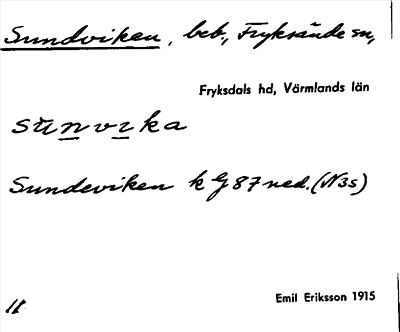 Sundviken, beb., Fryksände sn,
Fryksdals hd, Värmlands län
sŭnvıka
Sundeviken k G 87 ned. (N3s)
Emil Eriksson 1915